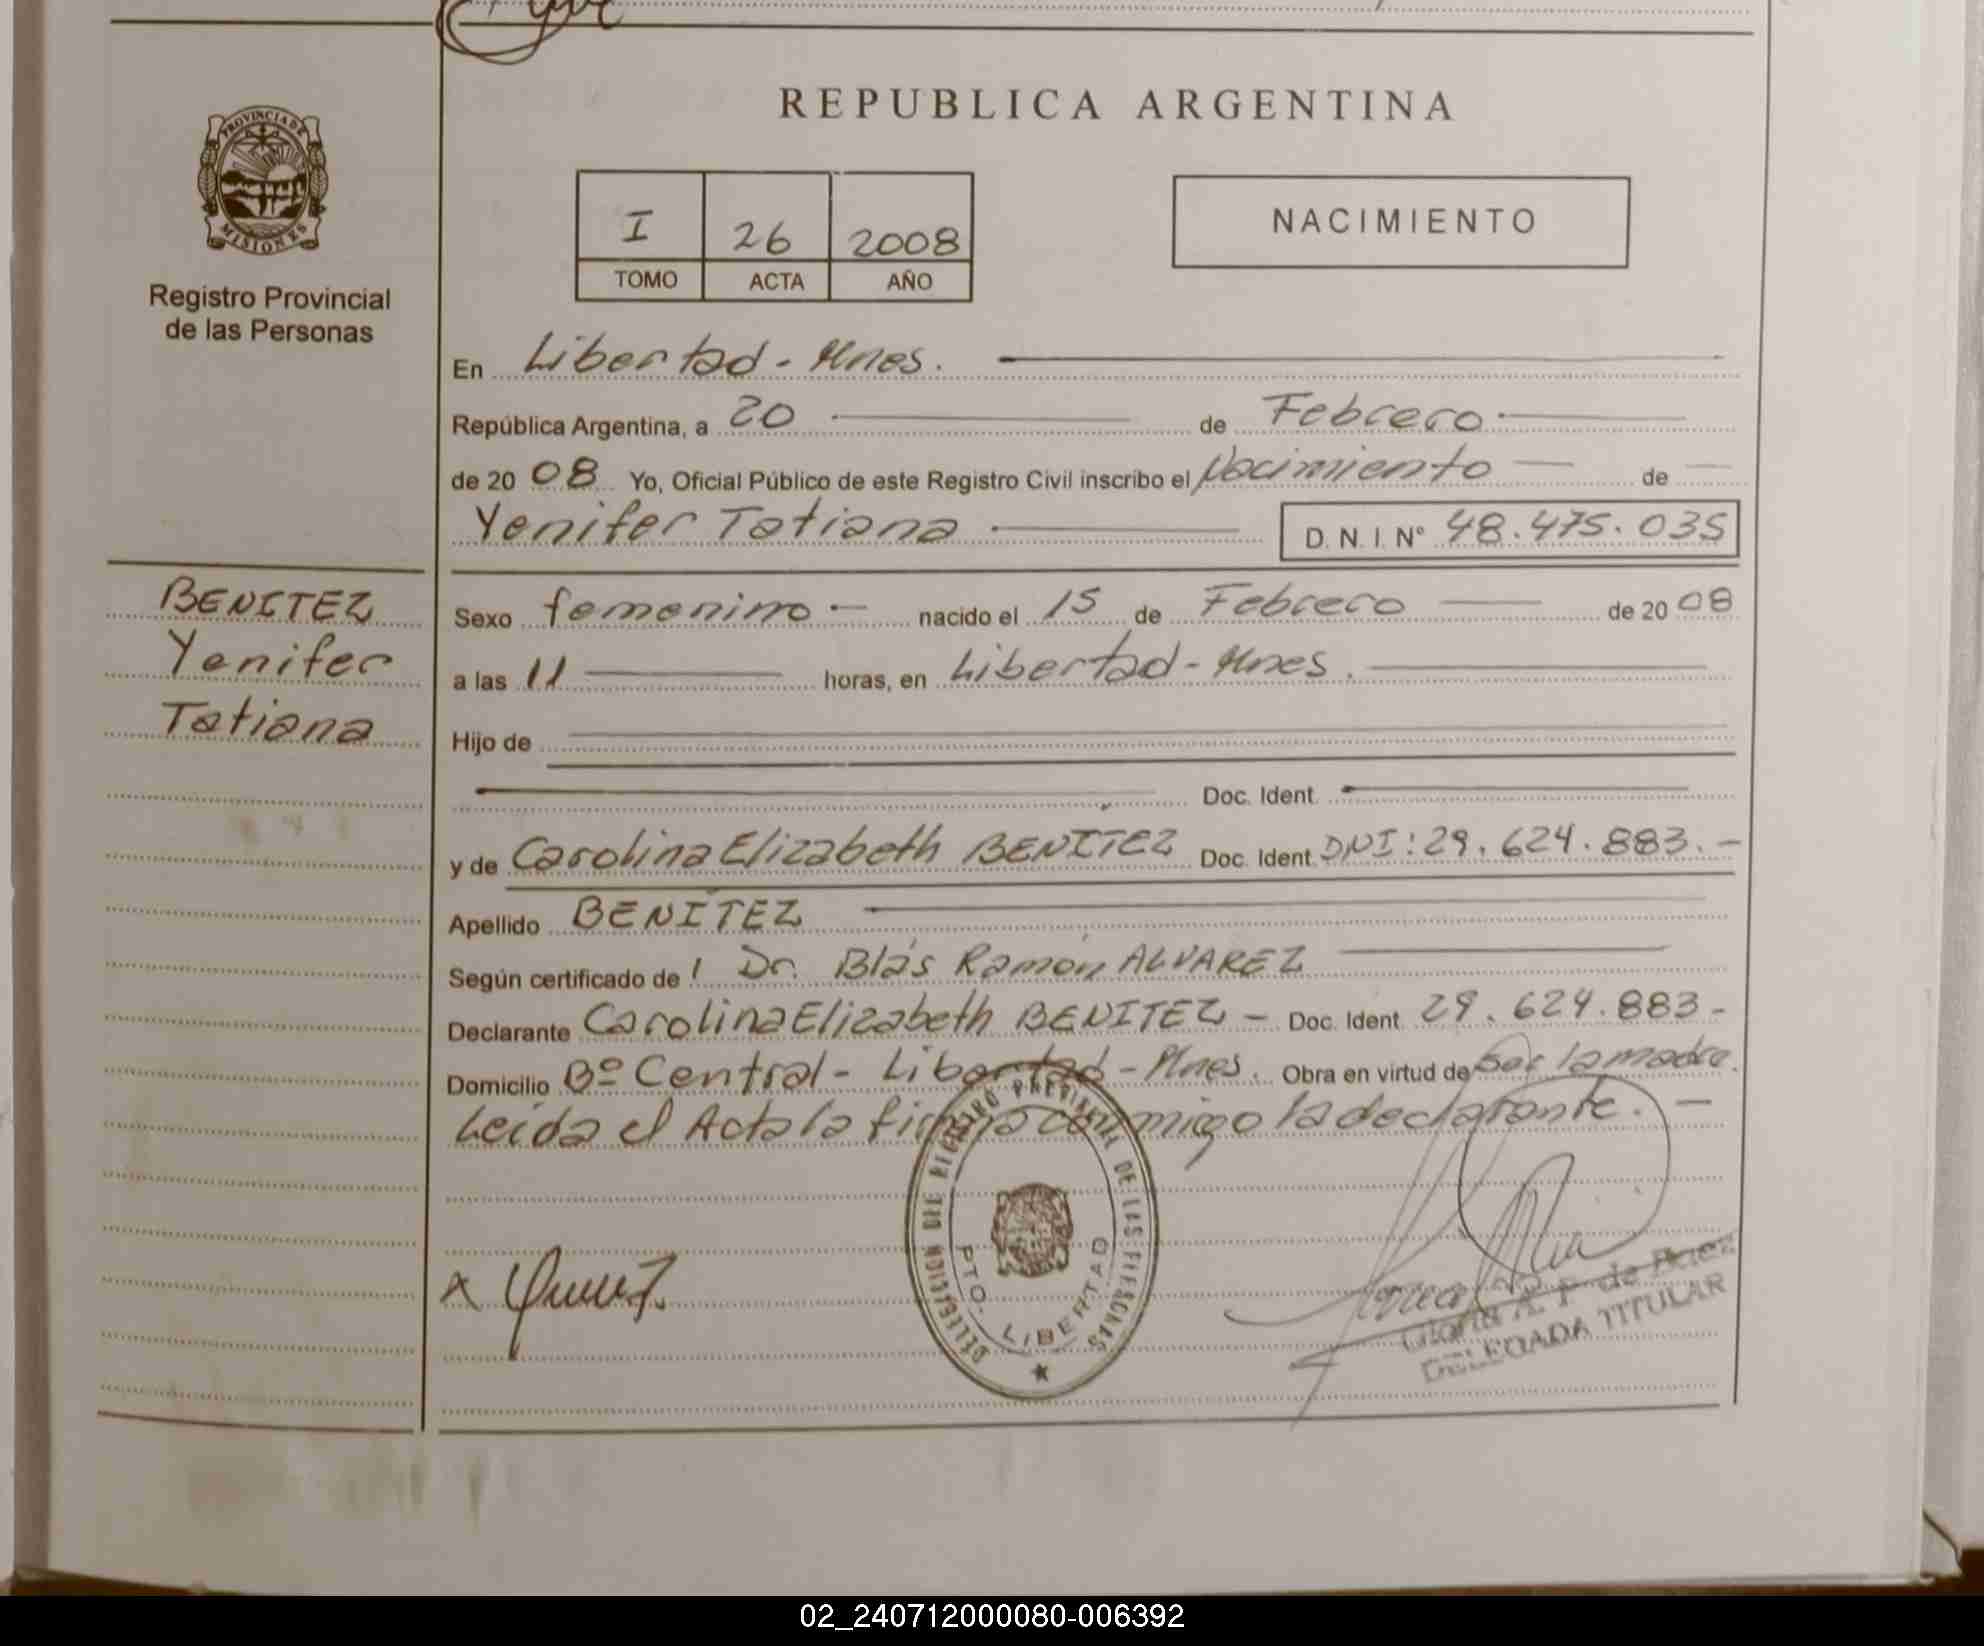 REPUBLICA ARGENTINA
PROVINCIA DE
MISIONES
Registro Provincial
de las Personas
I 26 2008
TOMO ACTA AÑO
NACIMIENTO
En Libertad - Mnes.
República Argentina, a 20 de Febrero
de 20 08 Yo, Oficial Público de este Registro Civil inscribo el Nacimiento de
Yenifer Tatiana D. N. I. N° 48.475.035
BENITEZ
Yenifer
Tatiana
Sexo femenino nacido el 15 de Febrero de 20 08
a las 11 horas, en Libertad - Mnes.
Hijo de
Doc. Ident.
y de Carolina Elizabeth BENÍTEZ Doc. Ident. DNI: 29.624.883.-
Apellido BENÍTEZ
Según certificado de Dr. Blás Ramón ALVAREZ
Declarante Carolina Elizabeth BENITEZ - Doc. Ident. 29.624.883-
Domicilio Bº Central - Libertad - Mnes. Obra en virtud de Ser la madre.
Leída el Acta la firma conmigo la declarante. -
DELEGACION DEL REGISTRO PROVINCIAL DE LAS PERSONAS
PTO. LIBERTAD
x
Gloria A. P. de Baez
DELEGADA TITULAR
02_240712000080-006392